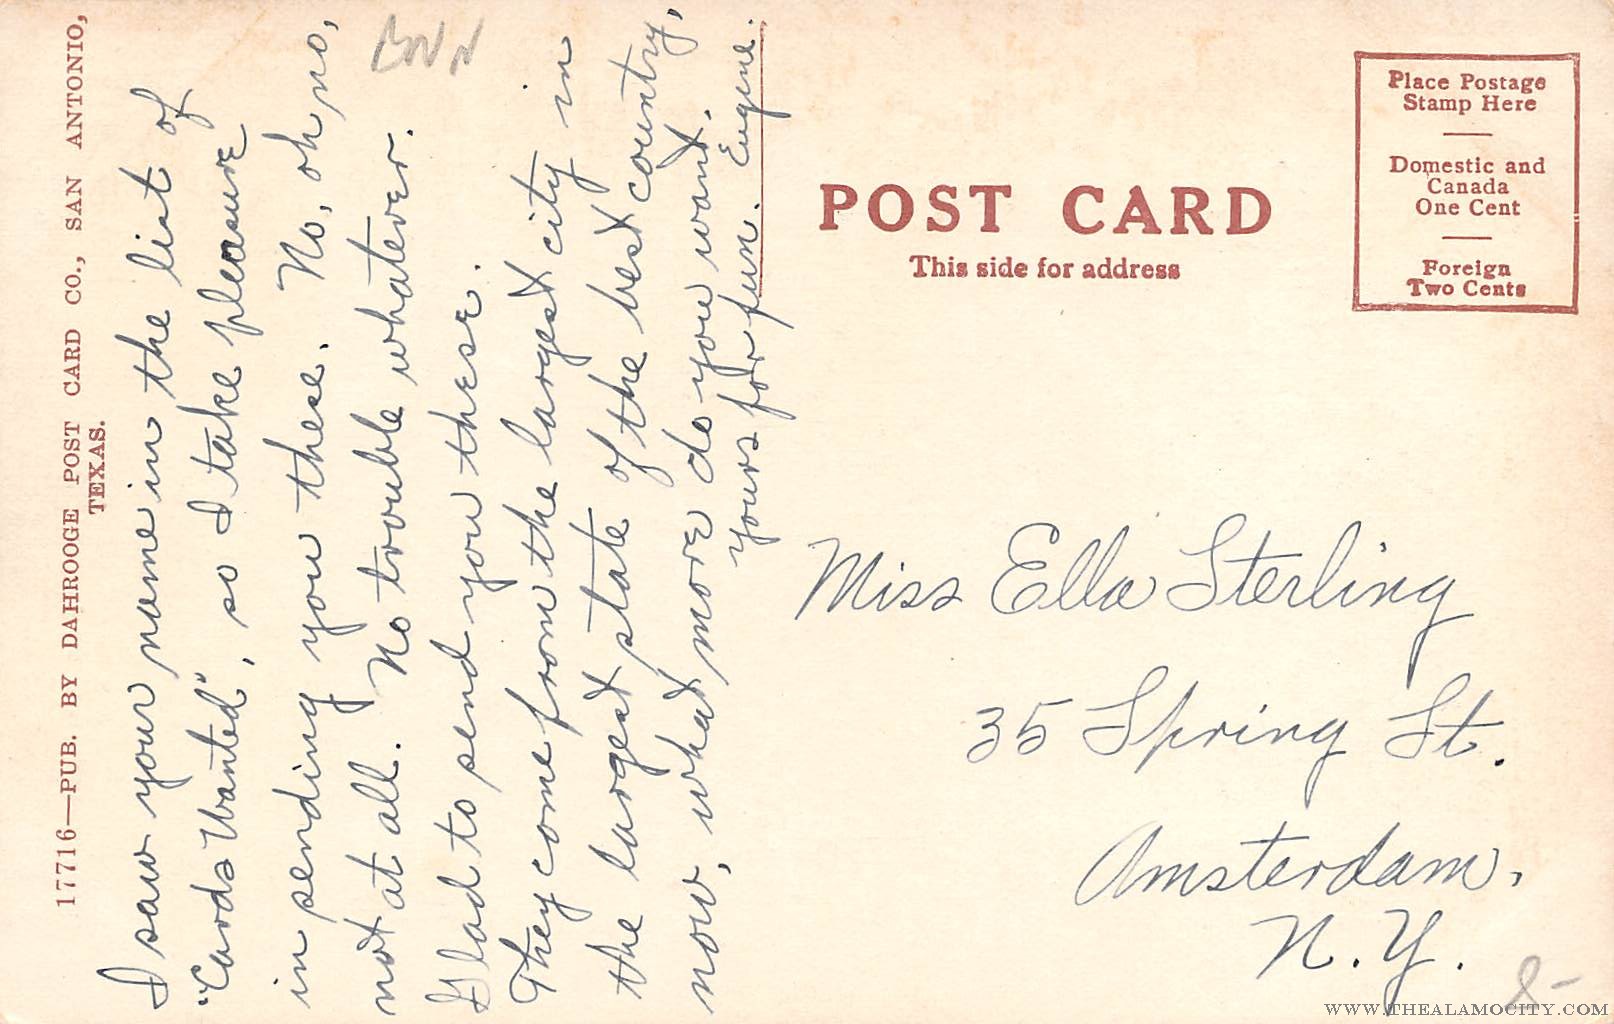 17716—PUB. BY DAHROOGE POST CARD CO., SAN ANTONIO,
TEXAS.
I saw your name in the list of
"Cards Wanted", so I take pleasure
in sending you these. No, oh no,
not at all. No trouble whatever.
Glad to send you these.
They come from the largest city in
the largest state of the best country,
now, what more do you want.
yours for fun. Eugene.
POST CARD
This side for address
Place Postage
Stamp Here
Domestic and
Canada
One Cent
Foreign
Two Cents
Miss Ella Sterling
35 Spring St.
Amsterdam,
N.Y.
8-
WWW.THEALAMOCITY.COM